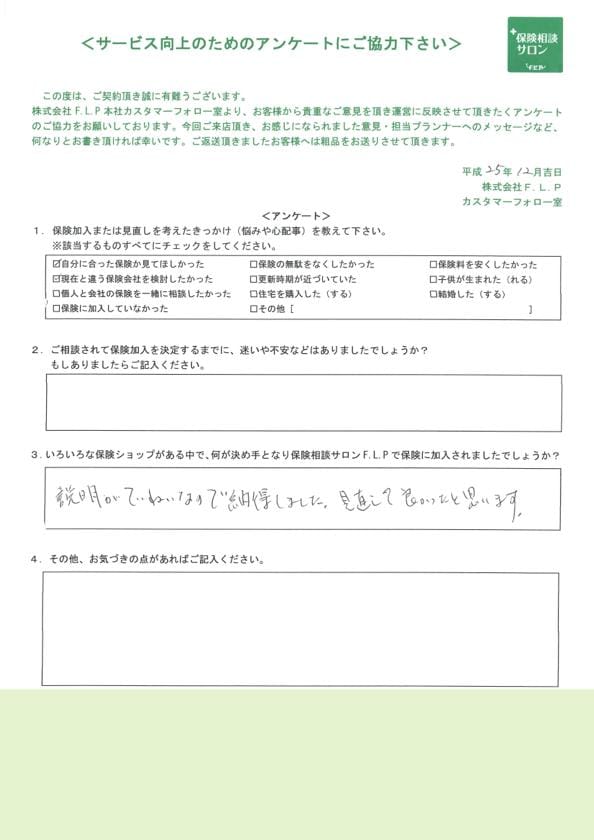 ＜サービス向上のためのアンケートにご協力下さい＞
保険相談
サロン
F.L.P
この度は、ご契約頂き誠に有難うございます。
株式会社Ｆ.Ｌ.Ｐ本社カスタマーフォロー室より、お客様から貴重なご意見を頂き運営に反映させて頂きたくアンケート
のご協力をお願いしております。今回ご来店頂き、お感じになられました意見・担当プランナーへのメッセージなど、
何なりとお書き頂ければ幸いです。ご返送頂きましたお客様へは粗品をお送りさせて頂きます。
平成 25年 12月吉日
株式会社Ｆ.Ｌ.Ｐ
カスタマーフォロー室
＜アンケート＞
１．保険加入または見直しを考えたきっかけ（悩みや心配事）を教えて下さい。
※該当するものすべてにチェックをしてください。
☑自分に合った保険か見てほしかった □保険の無駄をなくしたかった □保険料を安くしたかった
☑現在と違う保険会社を検討したかった □更新時期が近づいていた □子供が生まれた（れる）
□個人と会社の保険を一緒に相談したかった □住宅を購入した（する） □結婚した（する）
□保険に加入していなかった □その他［ ］
２．ご相談されて保険加入を決定するまでに、迷いや不安などはありましたでしょうか？
もしありましたらご記入ください。
３.いろいろな保険ショップがある中で、何が決め手となり保険相談サロンＦ.Ｌ.Ｐで保険に加入されましたでしょうか？
説明がていねいなので納得しました。見直して良かったと思います。
４．その他、お気づきの点があればご記入ください。